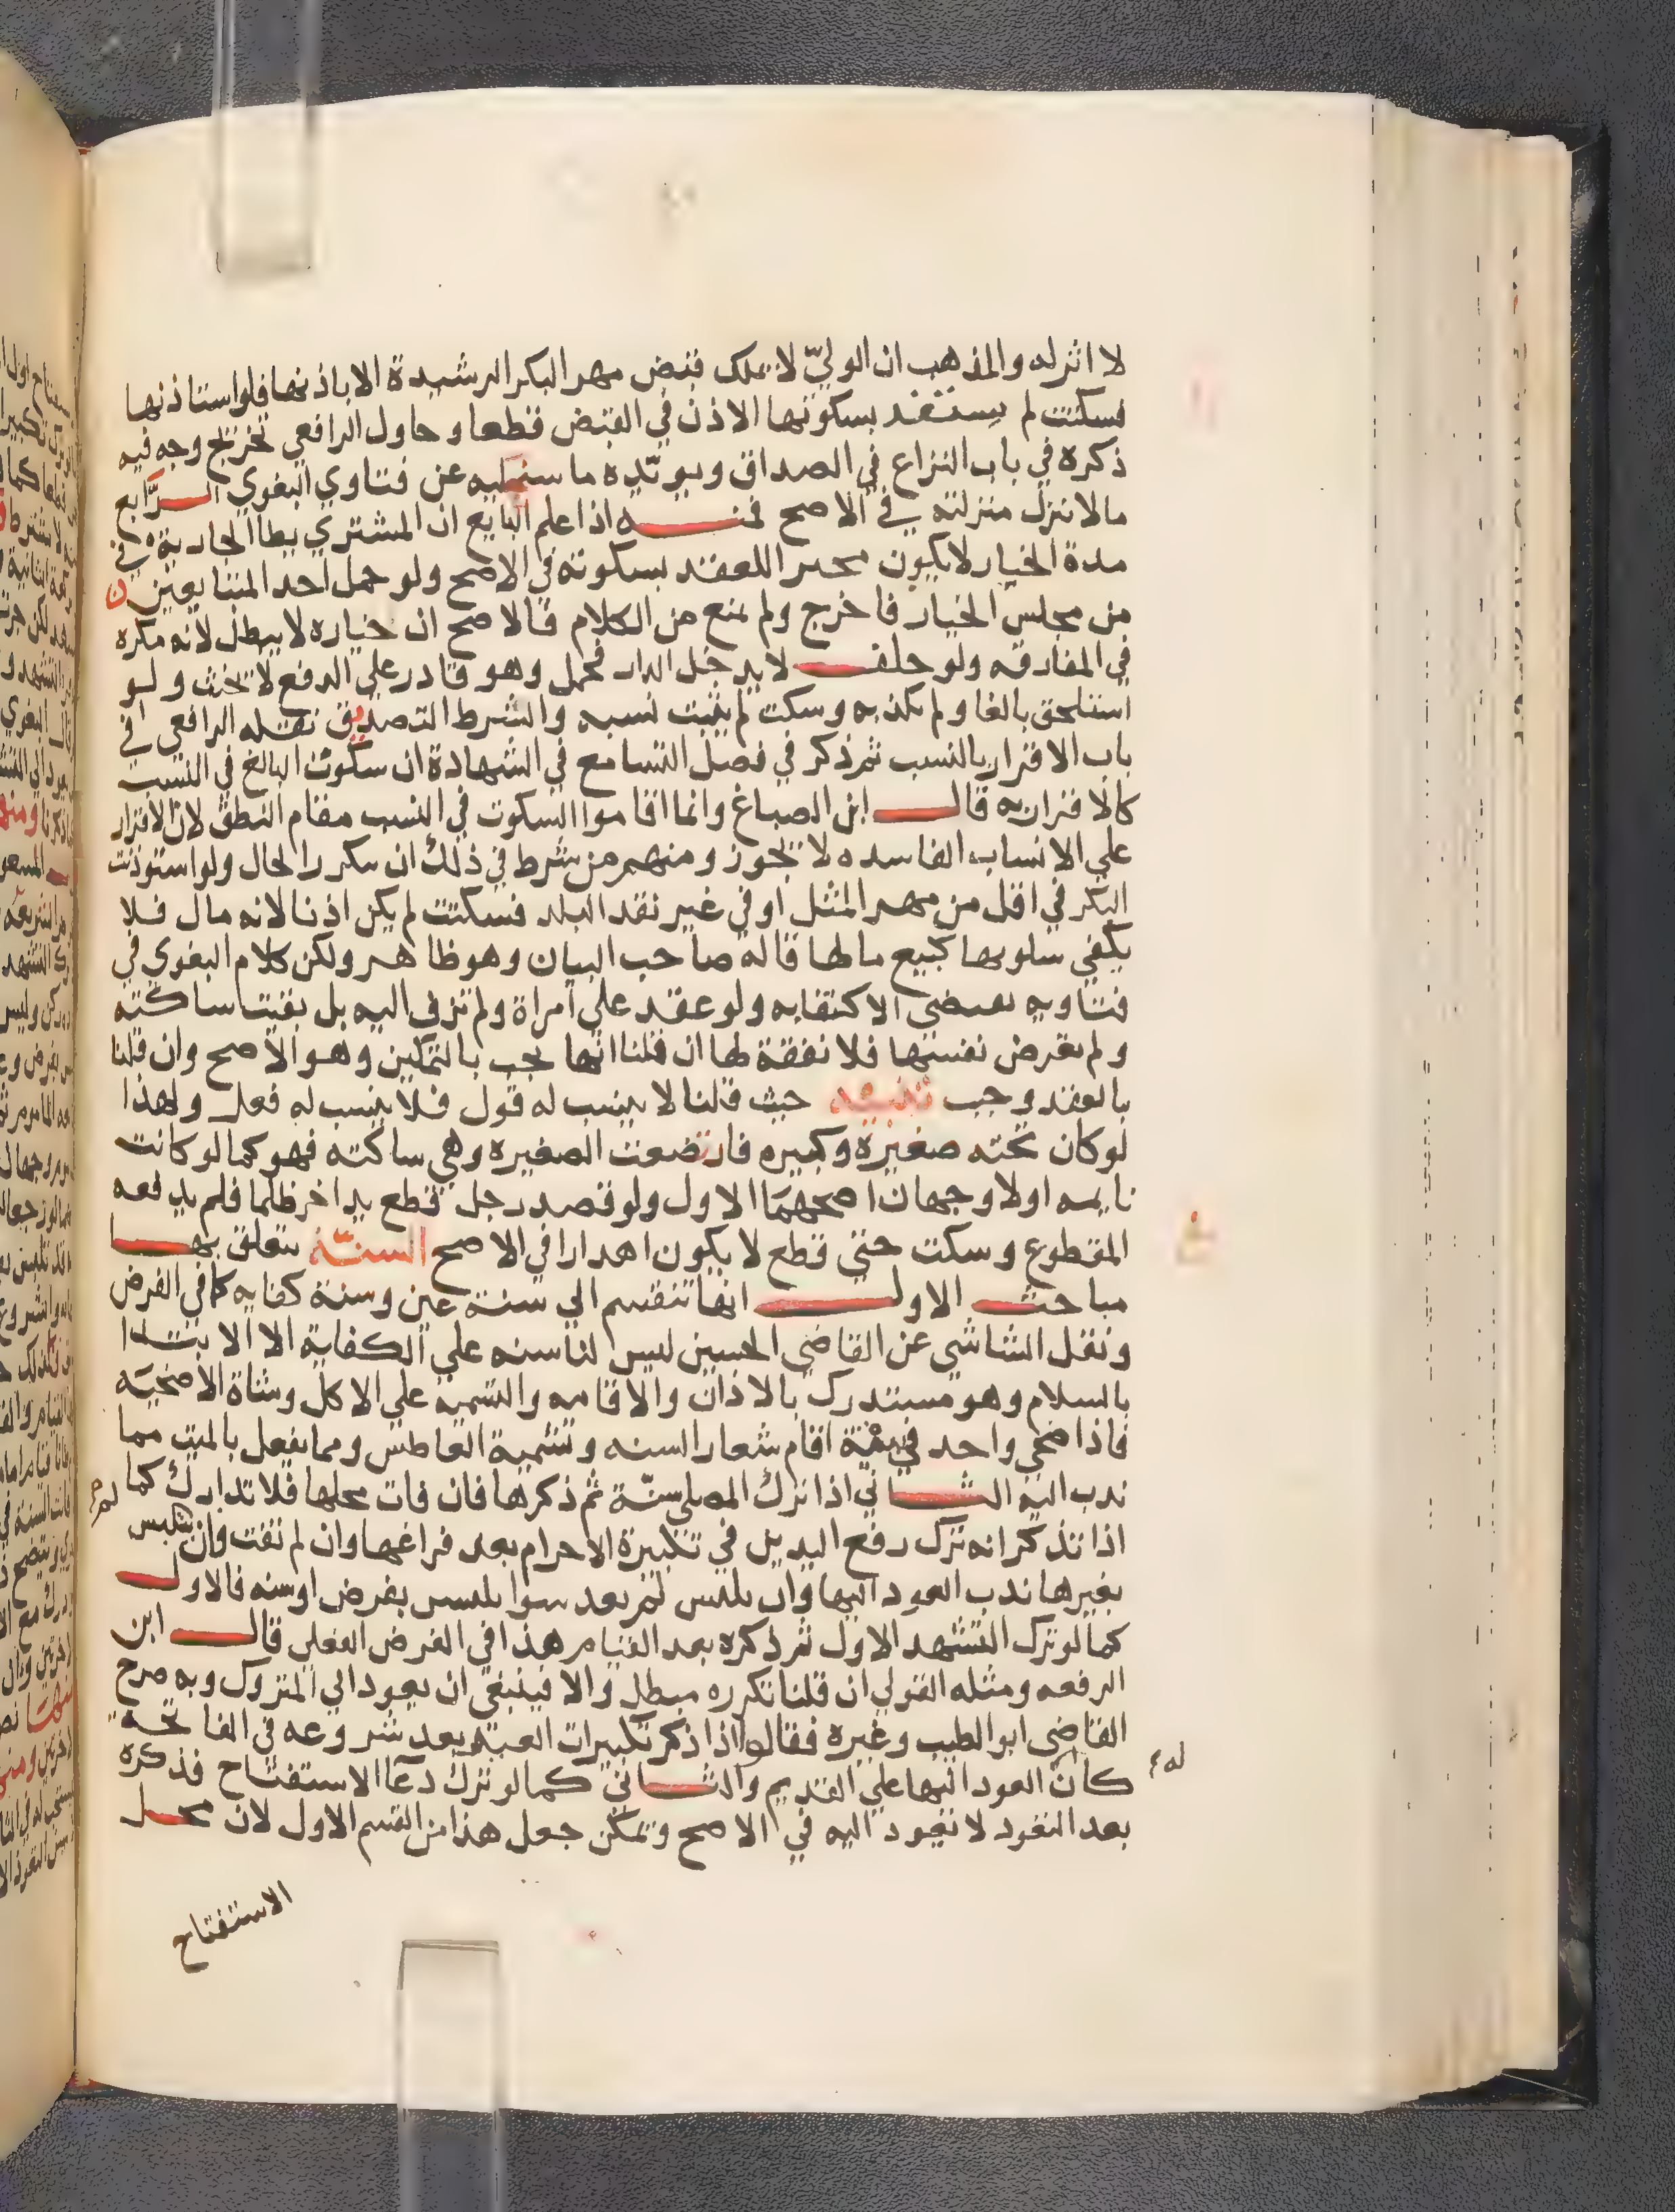 لا اثر له والمذهب ان الوليّ لا يملك قبض مهر البكر الرشيدة الا باذنها فلو استاذنها
فسكتت لم يستفد بسكوتها الاذن في القبض قطعا وحاول الرافعي تخريج وجه فيه
ذكره في باب النزاع في الصداق ويويّده ما سنحكيه عن فتاوي البغوي الرّابع
مالا تنزل منزلته في الاصح فمنه اذا علم البايع ان المشتري يطا الجارية في
مدة الخيار لا يكون مجيرا للعقد بسكوته في الاصح ولو حمل احد المتبايعين
من مجلس الخيار فاخرج ولم يمنع من الكلام فالاصح ان خياره لا يبطل لانه مكره
في المفارقه ولو حلف لا يدخل الدار فحمل وهو قادر علي الدفع لا يحنث ولو
استلحق بالغا ولم يكذبه وسكت لم يثبت نسبه والشرط التصديق نقله الرافعي في
باب الاقرار بالنسب ثم ذكر في فصل التسامع في الشهادة ان سكوت البالغ في النسب
كالاقران به قال ابن الصباغ وانما اقاموا السكوت في النسب مقام النطق لان الاقرار
علي الانساب الفاسده لا يجوز ومنهم من شرط في ذلك ان يتكرر الحال ولو استوذنت
البكر في اقل من مهر المثل او في غير نقد البلد فسكتت لم يكن اذنا لانه مال فلا
يكفي سكوتها كبيع مالها قاله صاحب البيان وهو ظاهر ولكن كلام البغوي في
فتاويه يقتضي الاكتفا به ولو عقد علي امراة ولم تزف اليه بل بقيت ساكته
ولم تعرض نفسها فلا نفقة لها ان قلنا انها تجب بالتمكين وهو الاصح وان قلنا
بالعقد وجب تنبيه حيث قلنا لا ينسب له قول فلا ينسب له فعل ولهذا
لو كان تحته صغيرة وكبيره فارتضعت الصغيره وهي ساكته فهو كما لو كانت
نايمه اولا وجهان اصحهما الاول ولو قصد رجل قطع يد اخر ظلما فلم يدفعه
المقطوع وسكت حتي قطع لا يكون اهدارا في الاصح السنّة يتعلق بها
مباحث الاول انها تنقسم الي سنة عين وسنة كفايه كما في الفرض
ونقل الشاشي عن القاضي الحسين ليس لنا سنه علي الكفاية الا الابتدا
بالسلام وهو مستدرك بالاذان والاقامه والتسميه علي الاكل وشاة الاضحيه
فاذا ضحي واحد في بيته اقام شعار السنه وتشمية العاطس ومما يفعل بالميت مما
ندب اليه الثاني اذا ترك المصلي سنّة ثم ذكرها فان فات محلها فلا تدارك كما
اذا تذكر انه ترك رفع اليدين في تكبيرة الاحرام بعد فراغها وان لم تفت وان لم يتلبس
بغيرها ندب العود اليها وان تلبس لم يعد سوا تلبس بفرض او سنه فالاول
كما لو ترك التشهد الاول ثم ذكره بعد القيام هذا في الفرض الفعلي قال ابن
الرفعه ومثله القولي ان قلنا تكرره مبطل والا فينبغي ان يعود الي المتروك وبه صرح
القاضي ابو الطيب وغيره فقالوا اذا ذكر تكبيرات العيد بعد شروعه في الفاتحة
كان له العود اليها علي القديم والثاني كما لو ترك دعا الاستفتاح فذكره
بعد التعوذ لا يعود اليه في الاصح ويمكن جعل هذا من القسم الاول لان محل
الاستفتاح